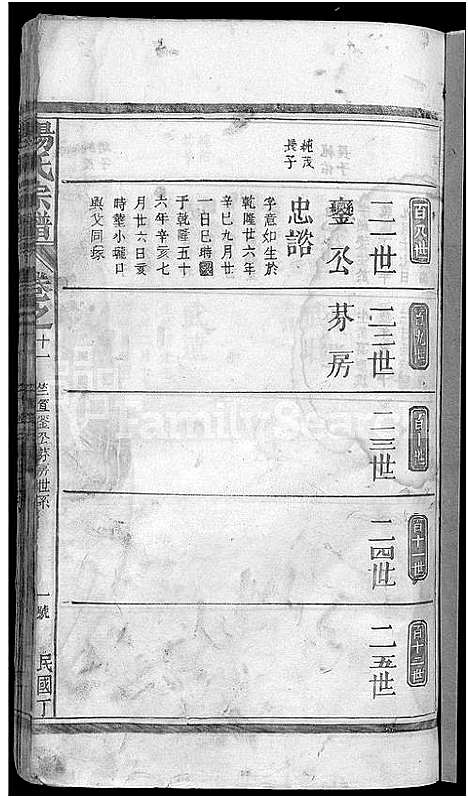 百八世
百九世
百十世
百十一世
百十二世
二一世
二二世
二三世
二四世
二五世
鑾公芬房
純茂
長子
忠諮
字意如生於
乾隆廿六年
辛巳九月廿
一日巳時
于乾隆五十
六年辛亥七
月廿六日亥
時葬小瓏口
與父同塚
楊氏宗譜
卷之十一
鑾公芬房世系
一號
民國丁
FamilySearch